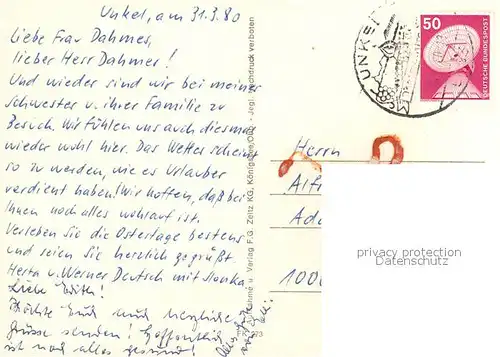 Unkel, am 31.3.80
Liebe Frau Dahmes,
lieber Herr Dahmes!
Und wieder sind wir bei meiner
Schwester u. ihrer Familie zu
Besuch. Wir fühlen uns auch diesmal
wieder wohl hier. Das Wetter scheint
so zu werden, wie es Urlauber
verdient haben! Wir hoffen, daß bei
Ihnen noch alles wohlauf ist.
Verleben Sie die Ostertage bestens
und seien Sie herzlich gegrüßt
Herta u. Werner Deutsch mit Monka
Liebe Edith!
Möchte Euch nur herzliche
Grüsse senden! Hoffentlich
ist noch alles gesund!
Alles Gute
Jegl. Nachdruck verboten
Verlag F.G. Zeitz KG, Königsee
UNKEL
50
DEUTSCHE BUNDESPOST
Herrn
Alf
Ad
1000
privacy protection
Datenschutz